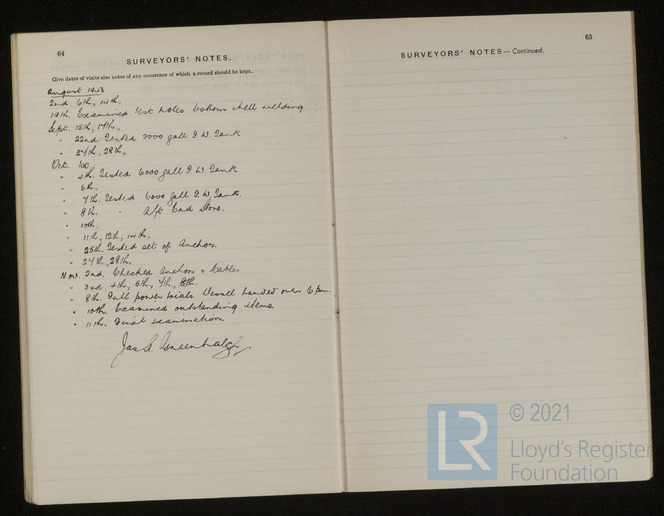 64
SURVEYORS' NOTES.
Give dates of visits also notes of any occurence of which a record should be kept.
August 1943
2nd, 6th, 14th,
19th. Examined test holes bottom shell welding
Sept. 15th, 17th,
" 22nd. Tested 2000 gall F.W. Tank
" 27th, 28th,
Oct. 1st,
" 4th. Tested 6000 gall F.W. Tank
" 6th,
" 7th. Tested 6000 gall F.W. Tank.
" 8th. " Aft End Store.
" 10th,
" 11th, 12th, 14th,
" 25th. Tested set of Anchors.
" 27th, 28th.
Nov. 2nd. Checked Anchors & Cables
" 3rd, 4th, 5th, 7th, 8th.
" 8th. Full power trials. Vessel handed over 6 pm.
" 10th. Examined outstanding items
" 11th. Final examination
Jas A. Greenhalgh
65
SURVEYORS' NOTES—Continued.
LR
© 2021
Lloyd's Register
Foundation